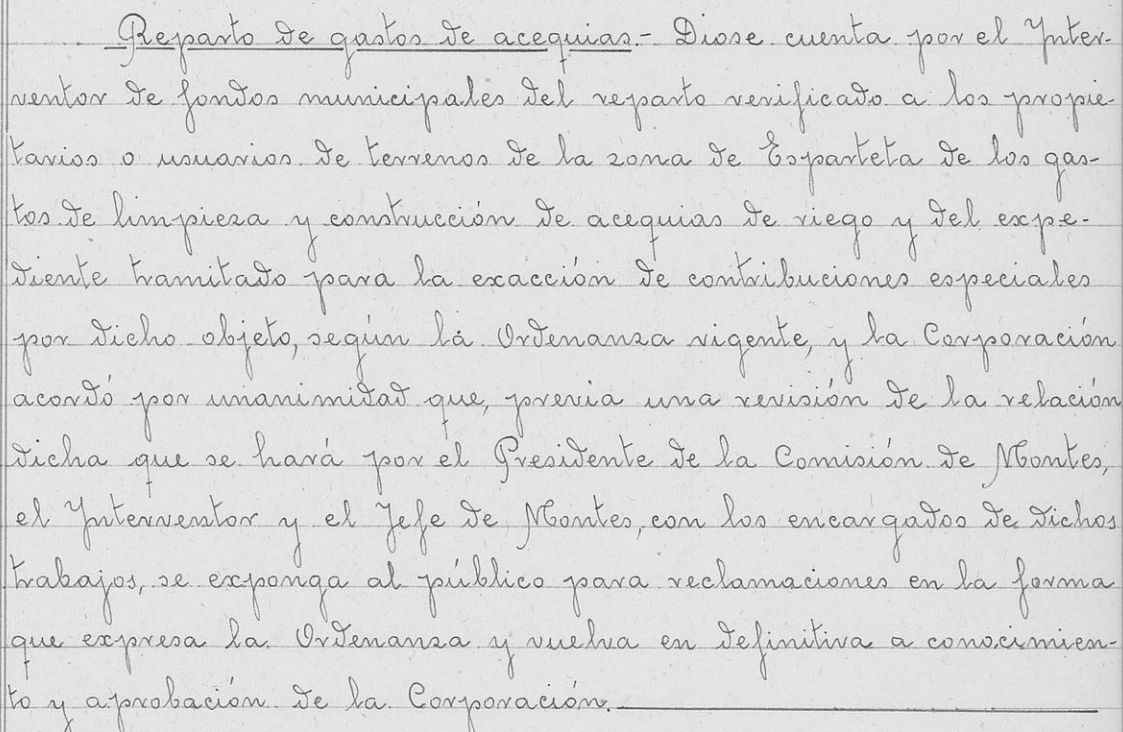 Reparto de gastos de acequias.- Diose cuenta por el Inter-
ventor de fondos municipales del reparto verificado a los propie-
tarios o usuarios de terrenos de la zona de Esparteta de los gas-
tos de limpieza y construcción de acequias de riego y del expe-
diente tramitado para la exacción de contribuciones especiales
por dicho objeto, según la Ordenanza vigente, y la Corporación
acordó por unanimidad que, previa una revisión de la relación
dicha que se hará por el Presidente de la Comisión de Montes,
el Interventor y el Jefe de Montes, con los encargados de dichos
trabajos, se exponga al público para reclamaciones en la forma
que expresa la Ordenanza y vuelva en definitiva a conocimien-
to y aprobación de la Corporación.